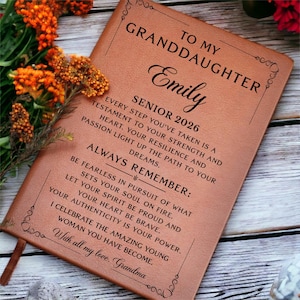 TO MY
GRANDDAUGHTER
Emily
SENIOR 2026
EVERY STEP YOU'VE TAKEN IS A
TESTAMENT TO YOUR STRENGTH AND
HEART. YOUR RESILIENCE AND
PASSION LIGHT UP THE PATH TO YOUR
DREAMS
ALWAYS REMEMBER:
BE FEARLESS IN PURSUIT OF WHAT
SETS YOUR SOUL ON FIRE.
LET YOUR SPIRIT BE PROUD AND
YOUR HEART BE BRAVE.
YOUR AUTHENTICITY IS YOUR POWER.
I CELEBRATE THE AMAZING YOUNG
WOMAN YOU HAVE BECOME.
With all my love, Grandma